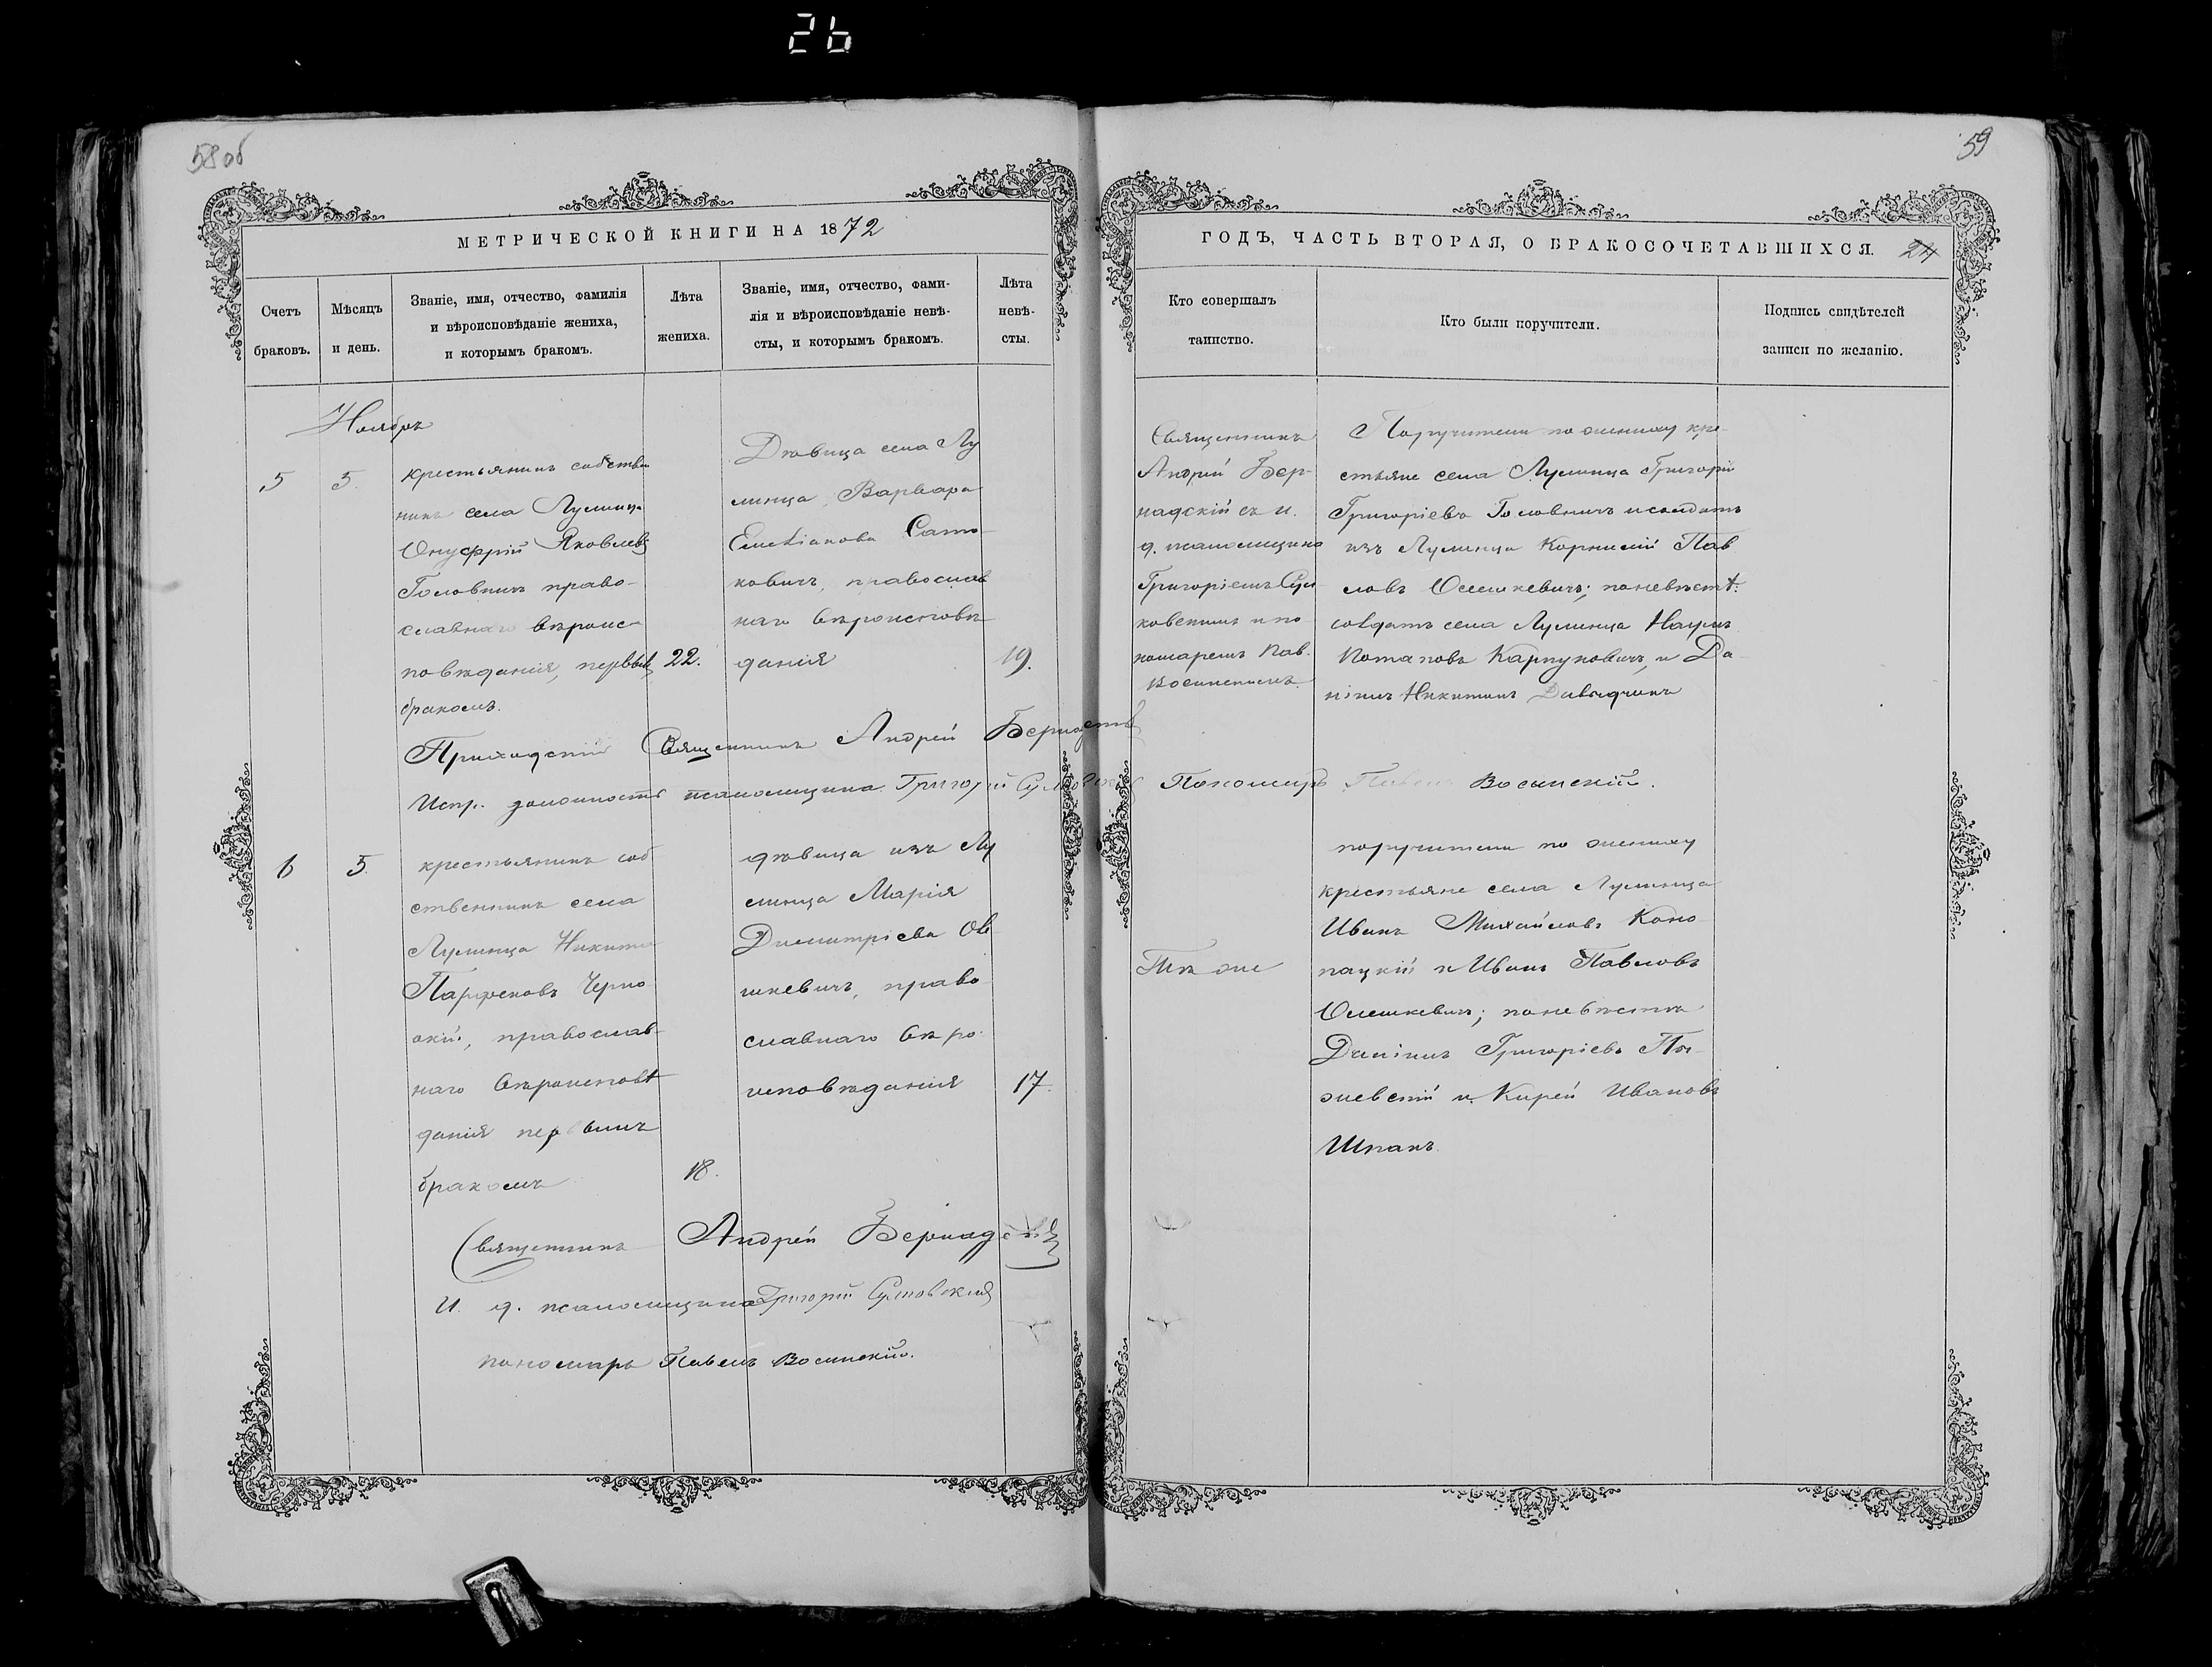 26
58 об
59
МЕТРИЧЕСКОЙ КНИГИ НА 1872
ГОДЪ, ЧАСТЬ ВТОРАЯ, О БРАКОСОЧЕТАВШИХСЯ.
24
Счетъ
браковъ.
Мѣсяцъ
и день.
Званіе, имя, отчество, фамилія
и вѣроисповѣданіе жениха,
и которымъ бракомъ.
Лѣта
жениха.
Званіе, имя, отчество, фами-
лія и вѣроисповѣданіе невѣ-
сты, и которымъ бракомъ.
Лѣта
невѣ-
сты.
Кто совершалъ
таинство.
Кто были поручители.
Подпись свидѣтелей
записи по желанію.
Ноябрь
5
5.
крестьянинъ собствен
никъ села Лулинца
Онуфрій Яковлевъ
Головничъ право-
славнаго вѣроис-
повѣданія, первымъ
бракомъ.
22.
Дѣвица села Лу
линца, Варвара
Емеліанова
ковичъ, православ
наго вѣроисповѣ
данія
19.
Священникъ
Андрей Бер-
надскій съ и.
д. псаломщика
Григоріемъ Сул
ковскимъ и по
номаремъ Пав.
Волынскимъ
Поручители по жениху кре-
стьяне села Лулинца Григорій
Григоріевъ Головничъ и солдатъ
изъ Лулинца Корнилій Пав
ловъ Олешкевичъ; по невѣстѣ:
солдатъ села Лулинца Наумъ
Потаповъ Карпуковичъ, и Да-
ніилъ Никитинъ Давыдчикъ
Приходскій Священникъ Андрей Бернадскій
Испр. должность псаломщика Григорій Сулковскій
Пономарь Павелъ Волынскій.
6
5.
крестьянинъ соб
ственникъ села
Лулинца Никита
Парфеновъ Черно
окій, православ-
наго вѣроисповѣ
данія первымъ
бракомъ
18.
дѣвица изъ Лу
линца Марія
Димитріева Ол-
шкевичъ, право-
славнаго вѣро-
исповѣданія
17.
Тѣ же
поручители по жениху
крестьяне села Лулинца
Иванъ Михайловъ Коно-
пацкій и Иванъ Павловъ
Олешкевичъ; по невѣстѣ
Даніилъ Григоріевъ
и Кирей Ивановъ
Шпакъ
Священникъ Андрей Бернадскій
И. д. псаломщика Григорій Сулковскій
пономарь Павелъ Волынскій.